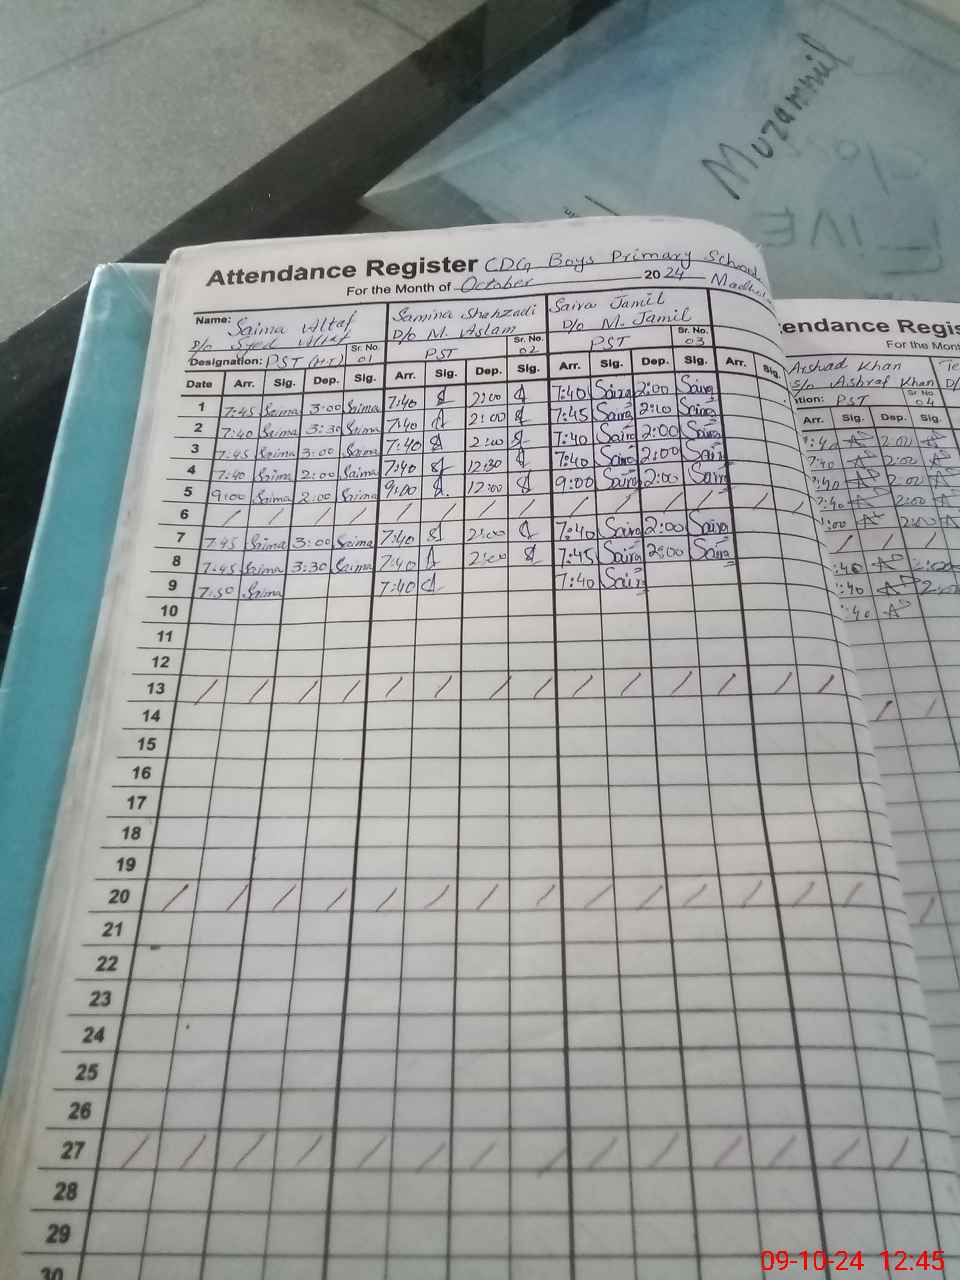 Muzammil
C/O
FIVE
Attendance Register CDG Boys Primary School
For the Month of October 2024
Name: Saima Altaf D/o Syed Altaf Samina Shahzadi D/o M. Aslam Saira Jamil D/o M. Jamil
Designation: PST (H.T) Sr. No. 01 PST Sr. No. 02 PST Sr. No. 03
Date Arr. Sig. Dep. Sig. Arr. Sig. Dep. Sig. Arr. Sig. Dep. Sig. Arr. Sig.
1 7:45 Saima 3:00 Saima 7:40 2:00 7:40 Saira 2:00 Saira
2 7:40 Saima 3:30 Saima 7:40 2:00 7:45 Saira 2:10 Saira
3 7:45 Saima 3:00 Saima 7:40 2:00 7:40 Saira 2:00 Saira
4 7:40 Saima 2:00 Saima 7:40 12:30 7:40 Saira 2:00 Saira
5 9:00 Saima 2:00 Saima 9:00 12:00 9:00 Saira 2:00 Saira
6 / / / / / / / / / / / / / /
7 7:45 Saima 3:00 Saima 7:40 2:00 7:40 Saira 2:00 Saira
8 7:45 Saima 3:30 Saima 7:40 2:00 7:45 Saira 2:00 Saira
9 7:50 Saima 7:40 7:40 Saira
10
11
12
13 / / / / / / / / / / / / / /
14
15
16
17
18
19
20 / / / / / / / / / / / / / /
21
22
23
24
25
26
27 / / / / / / / / / / / / / /
28
29
30
endance Regis
For the Mont
Arshad Khan
S/o Ashraf Khan D/
tion: PST Sr No 04
Arr. Sig. Dep. Sig.
7:40 2:00
7:40 2:00
:40 2:00
7:40 2:00
:00 2:00
/ / / /
:40 2:00
:40
:40
09-10-24 12:45